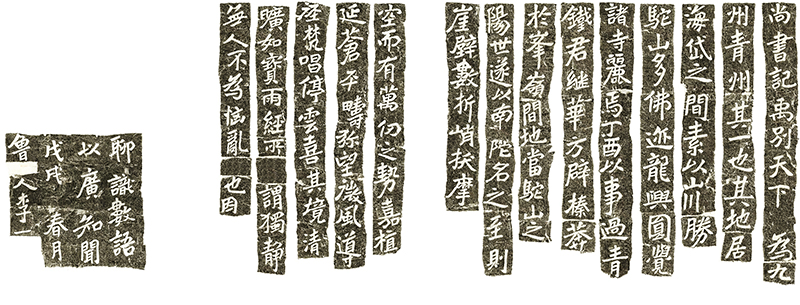 尚書記禹別天下為九
州青州其一也其地居
海岱之間素以山川勝
駝山多佛迹龍興圓覺
諸寺麗焉丁酉以事過青
鐵君継華方辟榛莽
於峯嶺間地當駝山之
陽世遂以南陀名之至則
崖壁數折峭拔摩
空而有萬仞之勢嘉植
延蒼平疇弥望淩風導
涇梵唱停雲喜其境清
曠如寶雨經所謂獨靜
無人不為惱亂也因
聊識數語
以廣知聞
戊戌春月
會人李一